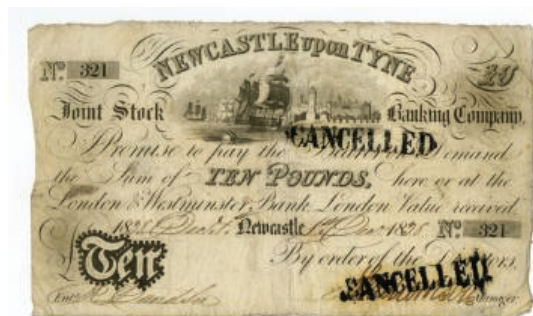 NEWCASTLE upon TYNE
Nº 321
Joint Stock Banking Company.
CANCELLED
I Promise to pay the Bearer on Demand
the Sum of TEN POUNDS, here or at the
London & Westminster Bank London Value received
Newcastle Nº 321
£Ten
By order of the Directors,
CANCELLED
Manager